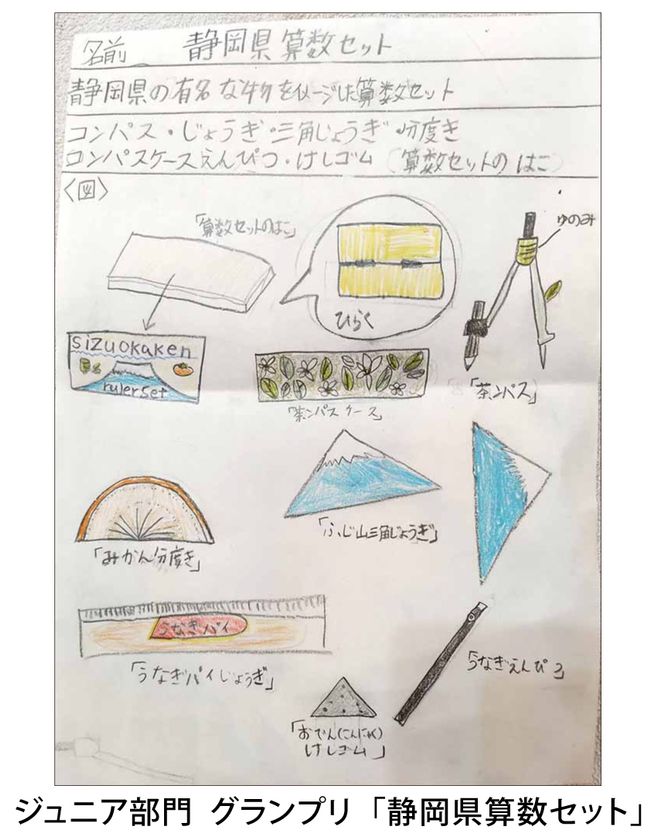 名前 静岡県算数セット
静岡県の有名な物をイメージした算数セット
コンパス・じょうぎ・三角じょうぎ・分度き
コンパスケースえんぴつ・けしゴム (算数セットのはこ)
〈図〉
「算数セットのはこ」
ひらく
ゆのみ
sizuokaken
rulerset
「茶ンパスケース」
「茶ンパス」
「みかん分度き」
「ふじ山三角じょうぎ」
うなぎパイ
「うなぎパイじょうぎ」
「うなぎえんぴつ」
「おでん(こんにゃく)
けしゴム」
ジュニア部門 グランプリ「静岡県算数セット」